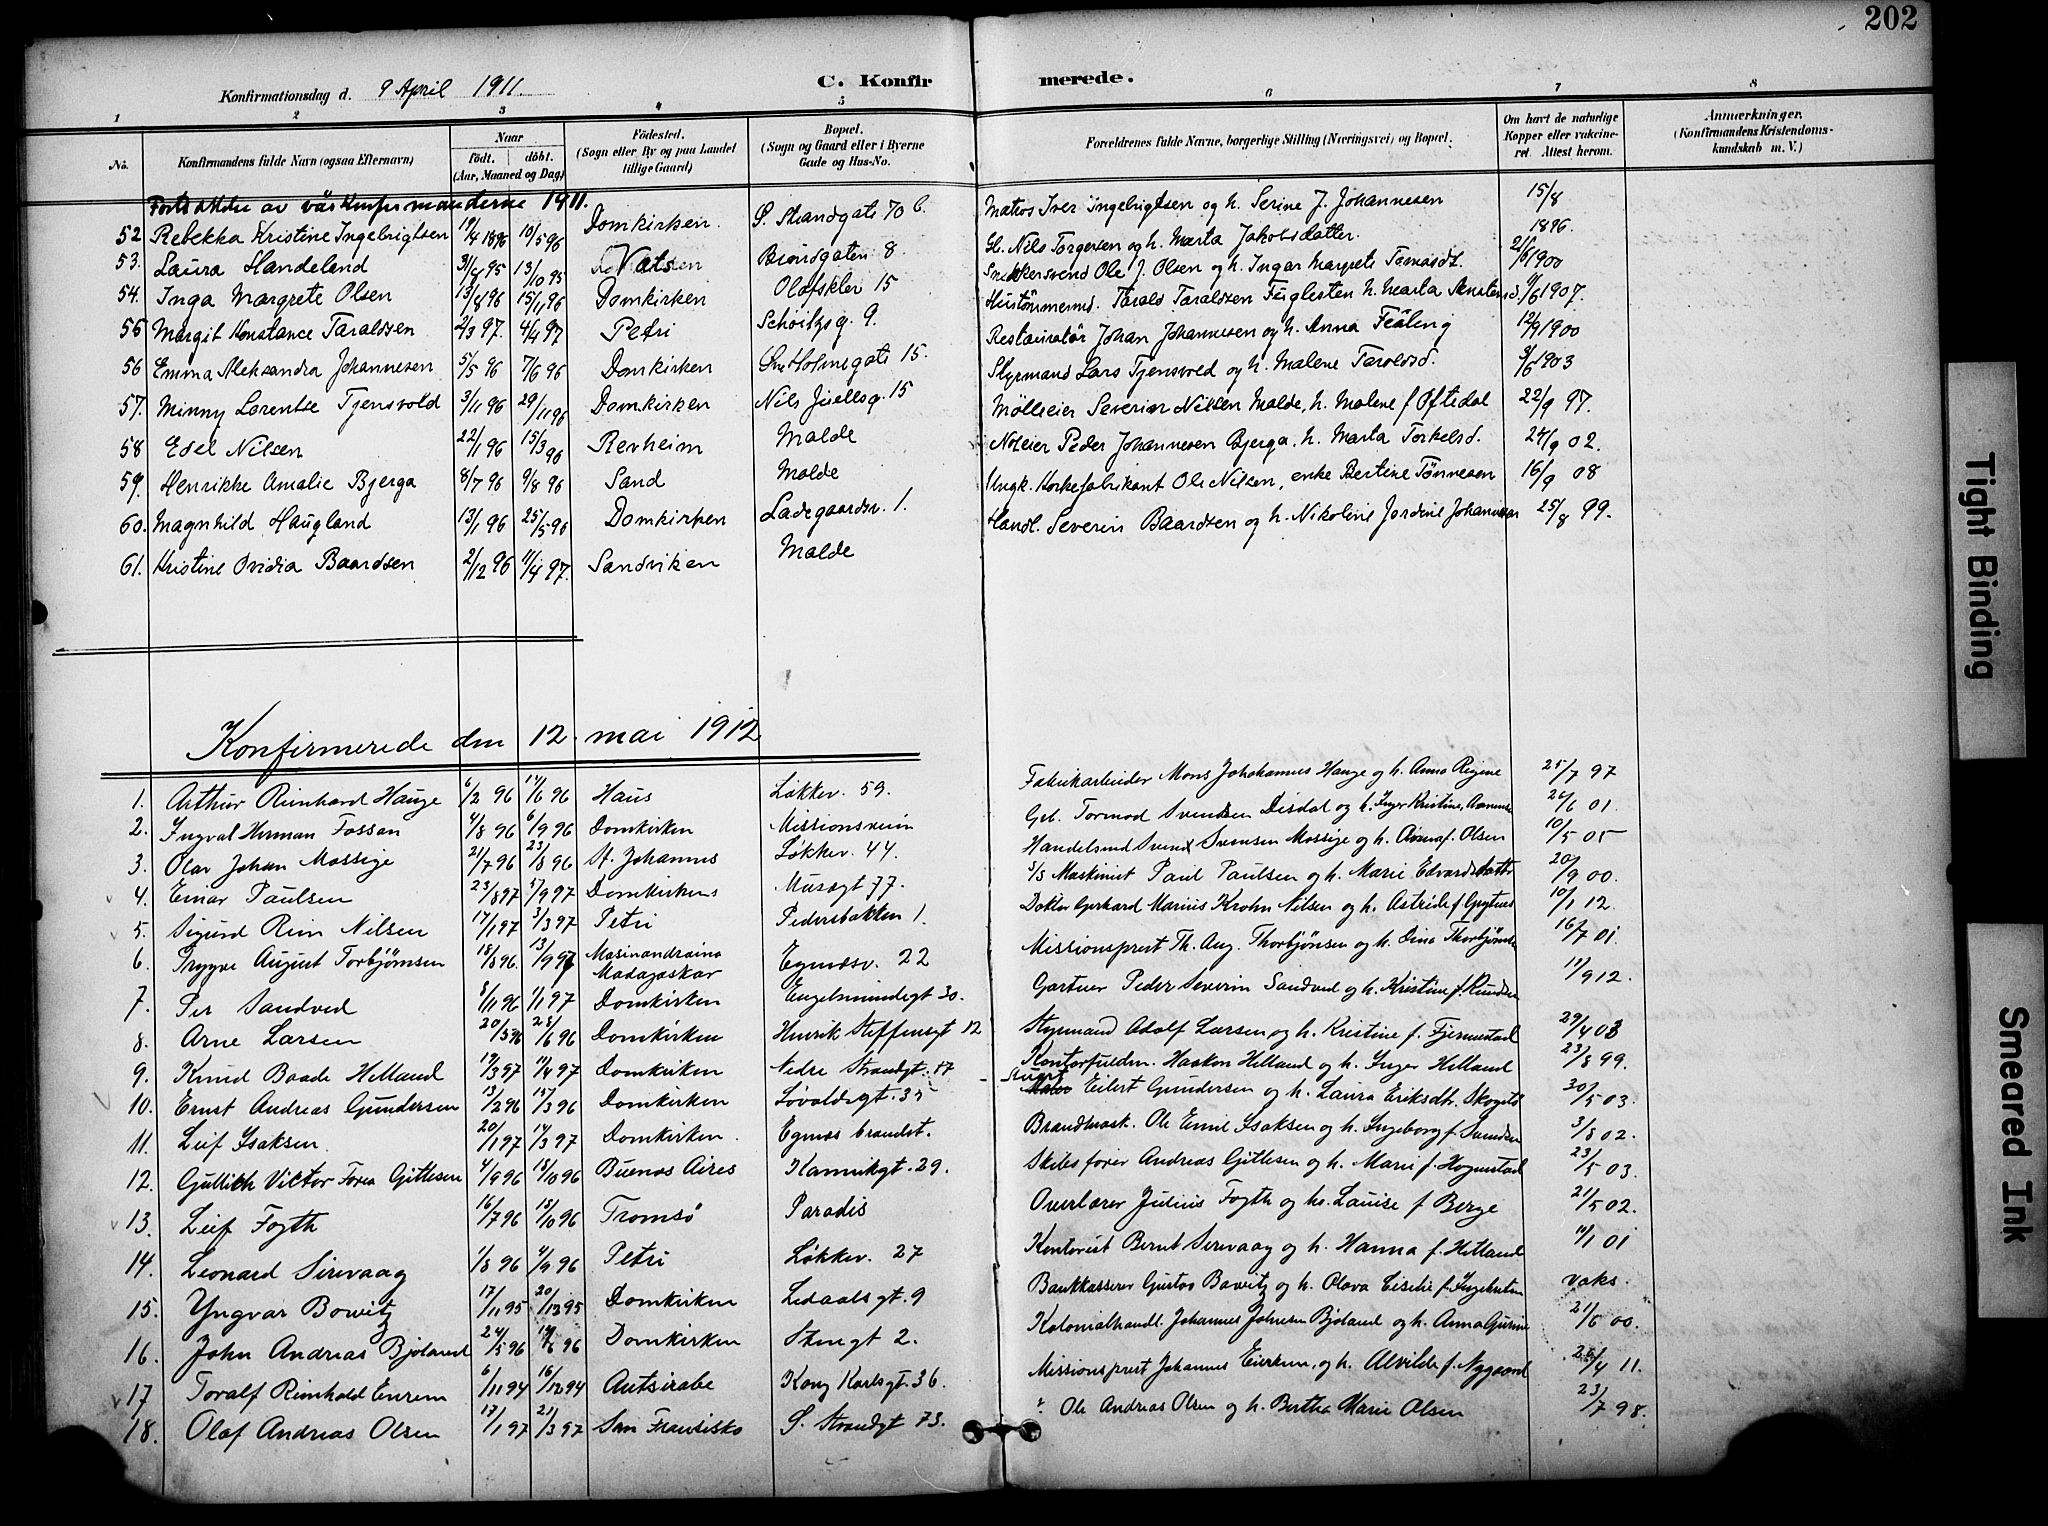 202
Konfirmationsdag d. 9 April 1911.
C. Konfirmerede.
1 2 3 4 5 6 7 8
No. Konfirmandens fulde Navn (ogsaa Efternavn) Naar födt. döbt. (Aar, Maaned og Dag) Födested. (Sogn eller By og paa Landet tillige Gaard) Bopæl. (Sogn og Gaard eller i Byerne Gade og Hus-No. Forældrenes fulde Navne, borgerlige Stilling (Næringsvei) og Bopæl. Om havt de naturlige Kopper eller vakcineret. Attest herom. Anmærkninger. (Konfirmandens Kristendomskundskab m. V.)
av vårkonfirmanderne 1911.
52 Rebekka Kristine Ingebrigtsen 19/4 1896 10/5 96 Domkirken. S. Strandgate 70 b. Matros Iver Ingebrigtsen og h. Serine J. Johannesen 15/8 1896.
53. Laura Handeland 31/8 95 13/10 95 Vats Biondgaten 8 Nils Torgersen og h. Marta Jakobsdatter. 21/6 1900
54. Inga Margrete Olsen 13/8 96 15/11 96 Domkirken Olafskler 15 Snekkersvend Ole J. Olsen og h. Inger Margrete Tomasdt. 11/6 1907.
55 Margit Konstance Taraldsen 2/3 97. 4/4 97 Petri Schøitzsg. 9. Hustømmermd. Tarald Taraldsen Fuglesten h. Marta 12/9 1900
56 Emma Aleksandra Johannesen 5/5 96 7/6 96 Domkirken Holmegate 15. Restauratør Johan Johannesen og h. Anna Feåling 3/6 1903
57. Minny Lorentse Tjensvold 3/11 96 29/11 96 Domkirken Nils Juellsg. 15 Styrmand Lars Tjensvold og h. Malene Taroldsd. 22/9 97.
58 Edel Nilsen 22/1 96 15/3 96 Revheim Malde Mölleier Severin Nilsen Malde, h. Malene f Oftedal 24/9 02.
59. Henrikke Amalie Bjerga 8/7 96 9/8 96 Sand Malde Noteier Peder Johannesen Bjerga, h. Marta Torkelsd. 16/9 08
60. Magnhild Haugland 13/1 96 25/5 96 Domkirken Ladegaardsv. 1. Ungk. Korkefabrikant Ole Nilsen, enke Bertine Tönnesen 25/8 99.
61. Kristine Ovidia Baardsen 2/12 96 11/4 97. Sandviken Malde Handl. Severin Baardsen og h. Nikoline Jordine Johannesen
Konfirmerede den 12. mai 1912
1. Arthur Reinhard Hauge 6/2 96 14/6 96 Haus Løkkev. 59. Fabrikarbeider Mons Johohannes Hauge og h. Anna Regine 25/7 97
2. Ingval Herman Fossan 4/8 96 6/9 96 Domkirken Missionsveien Gbl. Tormod Svendsen Disdal og h. Inger Kristine 26/6 01.
3. Olav Johan Mossige 21/7 96 23/8 96 St. Johannes Løkkev. 44. Handelsmd Svend Svensen Mossige og h. Anna f. Olsen 10/5 05
4. Einar Paulsen 23/8 97 5/9 97 Domkirkens Musegt 77. S/S Maskinist Paul Paulsen og h. Marie Edvardsdatter 20/9 00.
5. Sigurd Rein Nilsen 17/1 97 3/3 97 Petri Pedersbakken 1. Doktor Gerhard Marius Krohn Nilsen og h. Astride f 10/1 12.
6. Trygve August Torbjørnsen 18/8 96. 13/9 96 Masinandraina Madagaskar Egnæsv. 22 Missionsprest Th. Aug. Thorbjönsen og h. Dina Thorbjörnsen 16/7 01.
7. Per Sandved 8/11 96 1/1 97 Domkirken Engelsmindegt 30. Gartner Peder Severin Sandved og h. Kristine f. 11/9 12.
8. Arne Larsen 20/5 96 28/6 96 Domkirken Henrik Steffensgt 12 Styrmand Adolf Larsen og h. Kristine f. Fjermestad 29/4 03
9. Knud Baade Helland 19/3 97 11/4 97 Domkirken Nedre Strandgt. 17 Kontorfuldm. Haakon Helland og h. Inger Helland 23/8 99.
10. Ernst Andreas Gundersen 13/2 96 15/3 96 Domkirken Løvaldsgt. 35 Eilert Gundersen og h. Laura Eriksdtr. 30/5 03.
11. Leif Isaksen. 20/1 97 14/3 97 Domkirken. Egnæs brandst. Brandmask. Ole Emil Isaksen og h. Ingeborg f. 3/8 02.
12. Gullich Victor Forea Gittlesen 4/9 96 18/10 96 Buenos Aires Kannikgt. 29. Skibsfører Andreas Gittlesen og h. Marie f. Hognestad 23/5 03.
13. Leif Fogth 16/7 96 18/10 96 Tromsø Paradis Overlærer Julius Fogth og h. Louise f Berge 21/5 02.
14. Leonard Sirevaag 1/8 96 4/9 96 Petri Løkkev. 27 Kontorist Bernt Sirevaag og h. Hanna f. Hetland 11/1 01
15. Yngvar Bowitz 17/11 95 20/12 95 Domkirken Ledaalsgt. 9 Bankkasserer Gustav Bowitz og h. Olava Cisilie f. vaks.
16. John Andreas Bjoland 24/5 96 14/6 96 Domkirken Stengt 2. Kolonialhandl. Johannes Johnsen Bjoland og h. Anna Gurine 21/6 00.
17 Toralf Reinhold Einrem 6/11 94 16/12 94 Antsirabe Kong Karlsgt. 36. Missionsprest Johannes Einrem, og h. Alvilde f. Nygaard 25/4 11.
18. Olaf Andreas Olsen 17/1 97 21/3 97 San Fransisko S. Strandgt 73. Ole Andreas Olsen og h. Bertha Marie Olsen 23/7 98.
Tight Binding
Smeared Ink